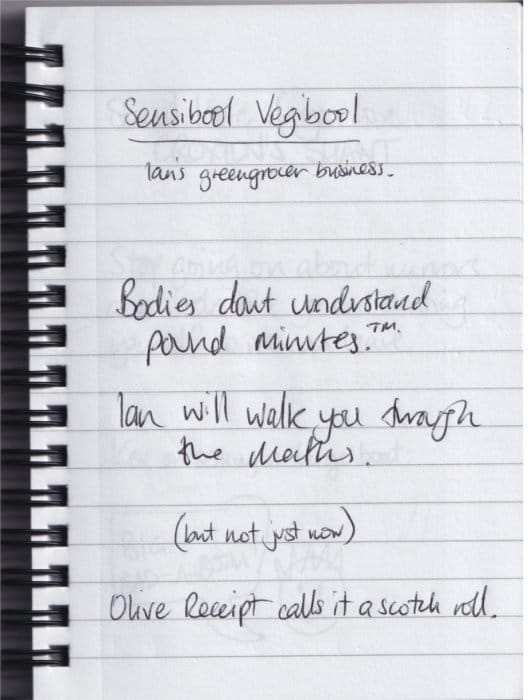 Sensibool Vegibool
Ian's greengrocer business.
Bodies dont understand
pound minutes.™
Ian will walk you through
the Maths.
(but not just now)
Olive Receipt calls it a scotch roll.